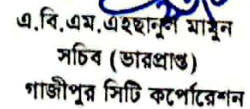 এ.বি.এম.এহছানুল মামুন
সচিব (ভারপ্রাপ্ত)
গাজীপুর সিটি কর্পোরেশন